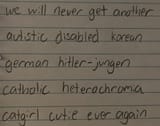 we will never get another
autistic disabled korean
german hitler-jungen
catholic heterochroma
catgirl cutie ever again